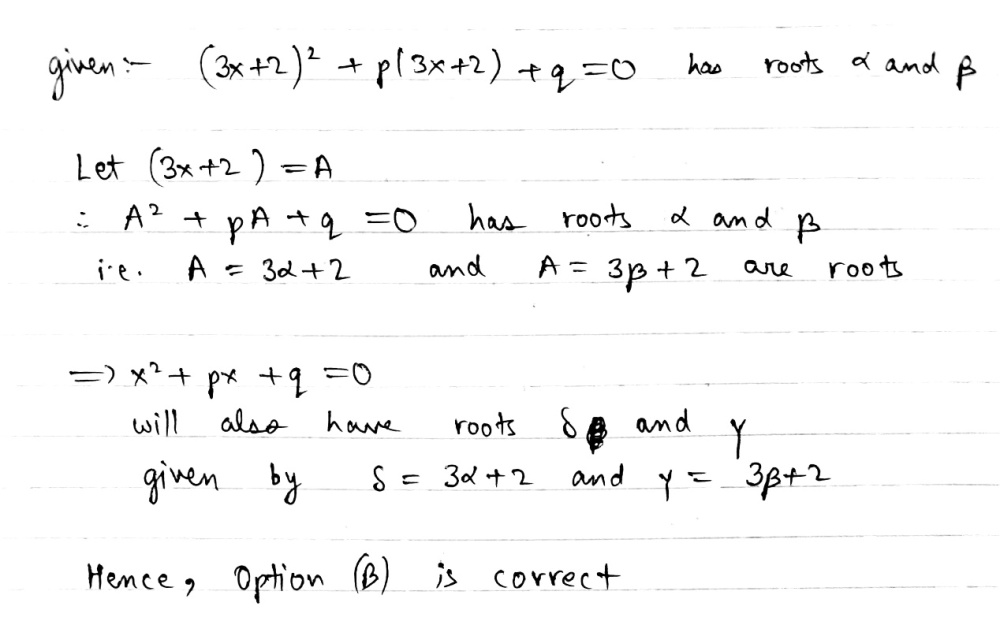 given :- (3x+2)² + p(3x+2) + q = 0 has roots α and β
Let (3x+2) = A
∴ A² + pA + q = 0 has roots α and β
i.e. A = 3α+2 and A = 3β+2 are roots
=> x² + px + q = 0
will also have roots δ and γ
given by δ = 3α+2 and γ = 3β+2
Hence, Option (B) is correct